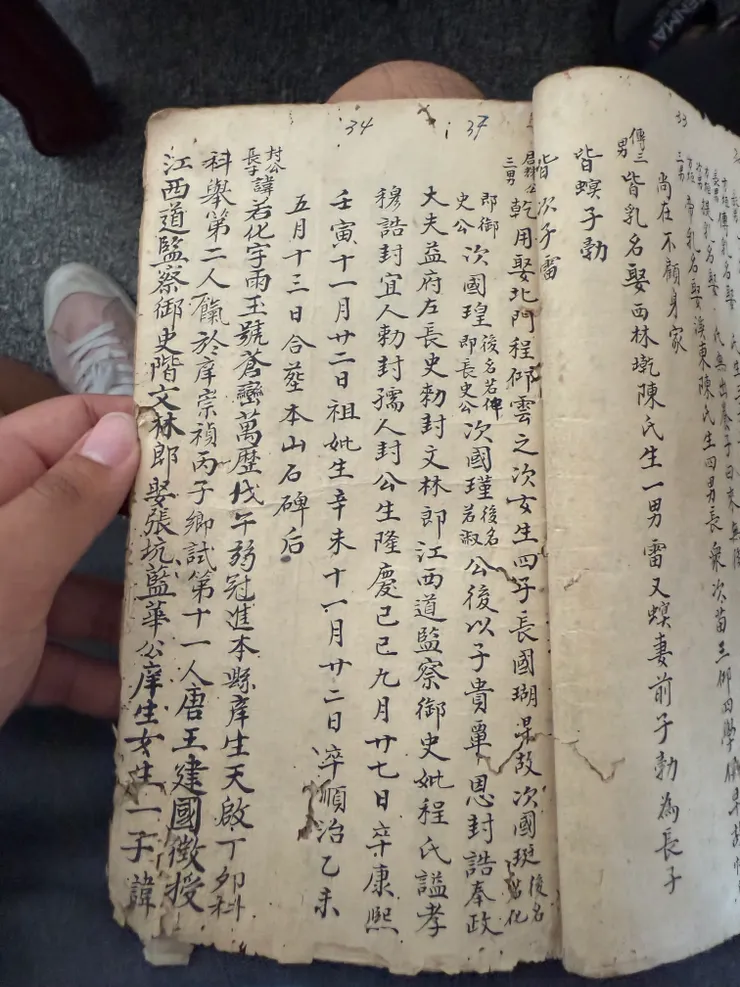 33
尚在不顧身家
傳三男皆乳名娶西林墘陳氏生一男雷又螟妻前子勃為長子
皆螟子勃
皆次子雷
37
34
三男乾用娶北門程御雲之次女生四子長國瑚早故次國珽後名若化
即御史公次國瑝後名若偉即長史公次國瑾後名若淑公後以子貴覃恩封誥奉政
大夫益府左長史勑封文林郎江西道監察御史妣程氏謚孝
穆誥封宜人勑封孺人封公生隆慶己巳九月廿七日卒康熙
壬寅十一月廿二日祖妣生辛未十一月廿二日卒順治乙未
五月十三日合葬本山石碑后
封公長子諱若化字雨玉號蒼巒萬歷戊午弱冠進本縣庠生天啟丁夘科
科舉第二人餼於庠崇禎丙子鄉試第十一人唐王建國徵授
江西道監察御史階文林郎娶張坑藍華公庠生女生一子諱